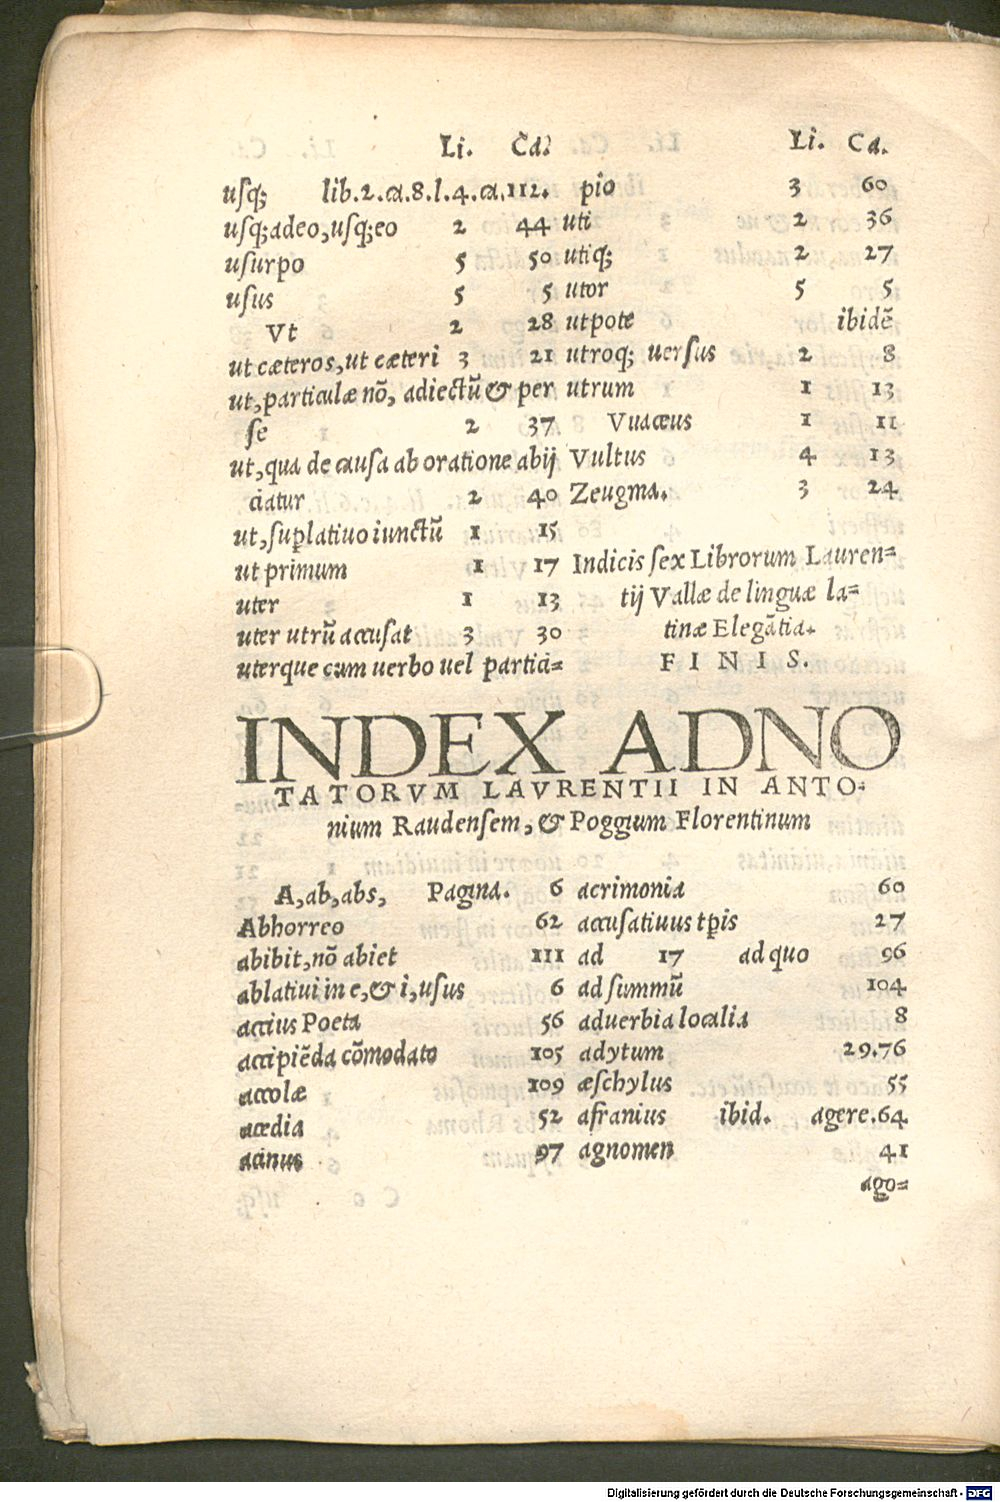 Li. Ca.
usq; lib.2.ca.8.l.4.ca.112.
usq;adeo,usq;eo 2 44
usurpo 5 50
usus 5 5
Vt 2 28
ut cæteros,ut cæteri 3 21
ut,particulæ nō, adiectū & per
se 2 37
ut,qua de causa ab oratione abij
ciatur 2 40
ut,suplatiuo iunctū 1 15
ut primum 1 17
uter 1 13
uter utrū accusat 3 30
uterque cum uerbo uel partici=
Li. Ca.
pio 3 60
uti 2 36
utiq; 2 27
utor 5 5
utpote ibidē
utroq; uersus 2 8
utrum 1 13
Vuaceus 1 11
Vultus 4 13
Zeugma. 3 24
Indicis sex Librorum Lauren=
tij Vallæ de linguæ la=
tinæ Elegātia.
FINIS.
INDEX ADNO
TATORVM LAVRENTII IN ANTO=
nium Raudensem, & Poggium Florentinum
A,ab,abs, Pagina. 6
Abhorreo 62
abibit,nō abiet 111
ablatiui in e,& i,usus 6
accius Poeta 56
accipiēda cōmodato 105
accolæ 109
acedia 52
acinus 97
acrimonia 60
accusatiuus tpis 27
ad 17 ad quo 96
ad summū 104
aduerbia localia 8
adytum 29.76
æschylus 55
afranius ibid. agere.64
agnomen 41
ago=
Digitalisierung gefördert durch die Deutsche Forschungsgemeinschaft - DFG